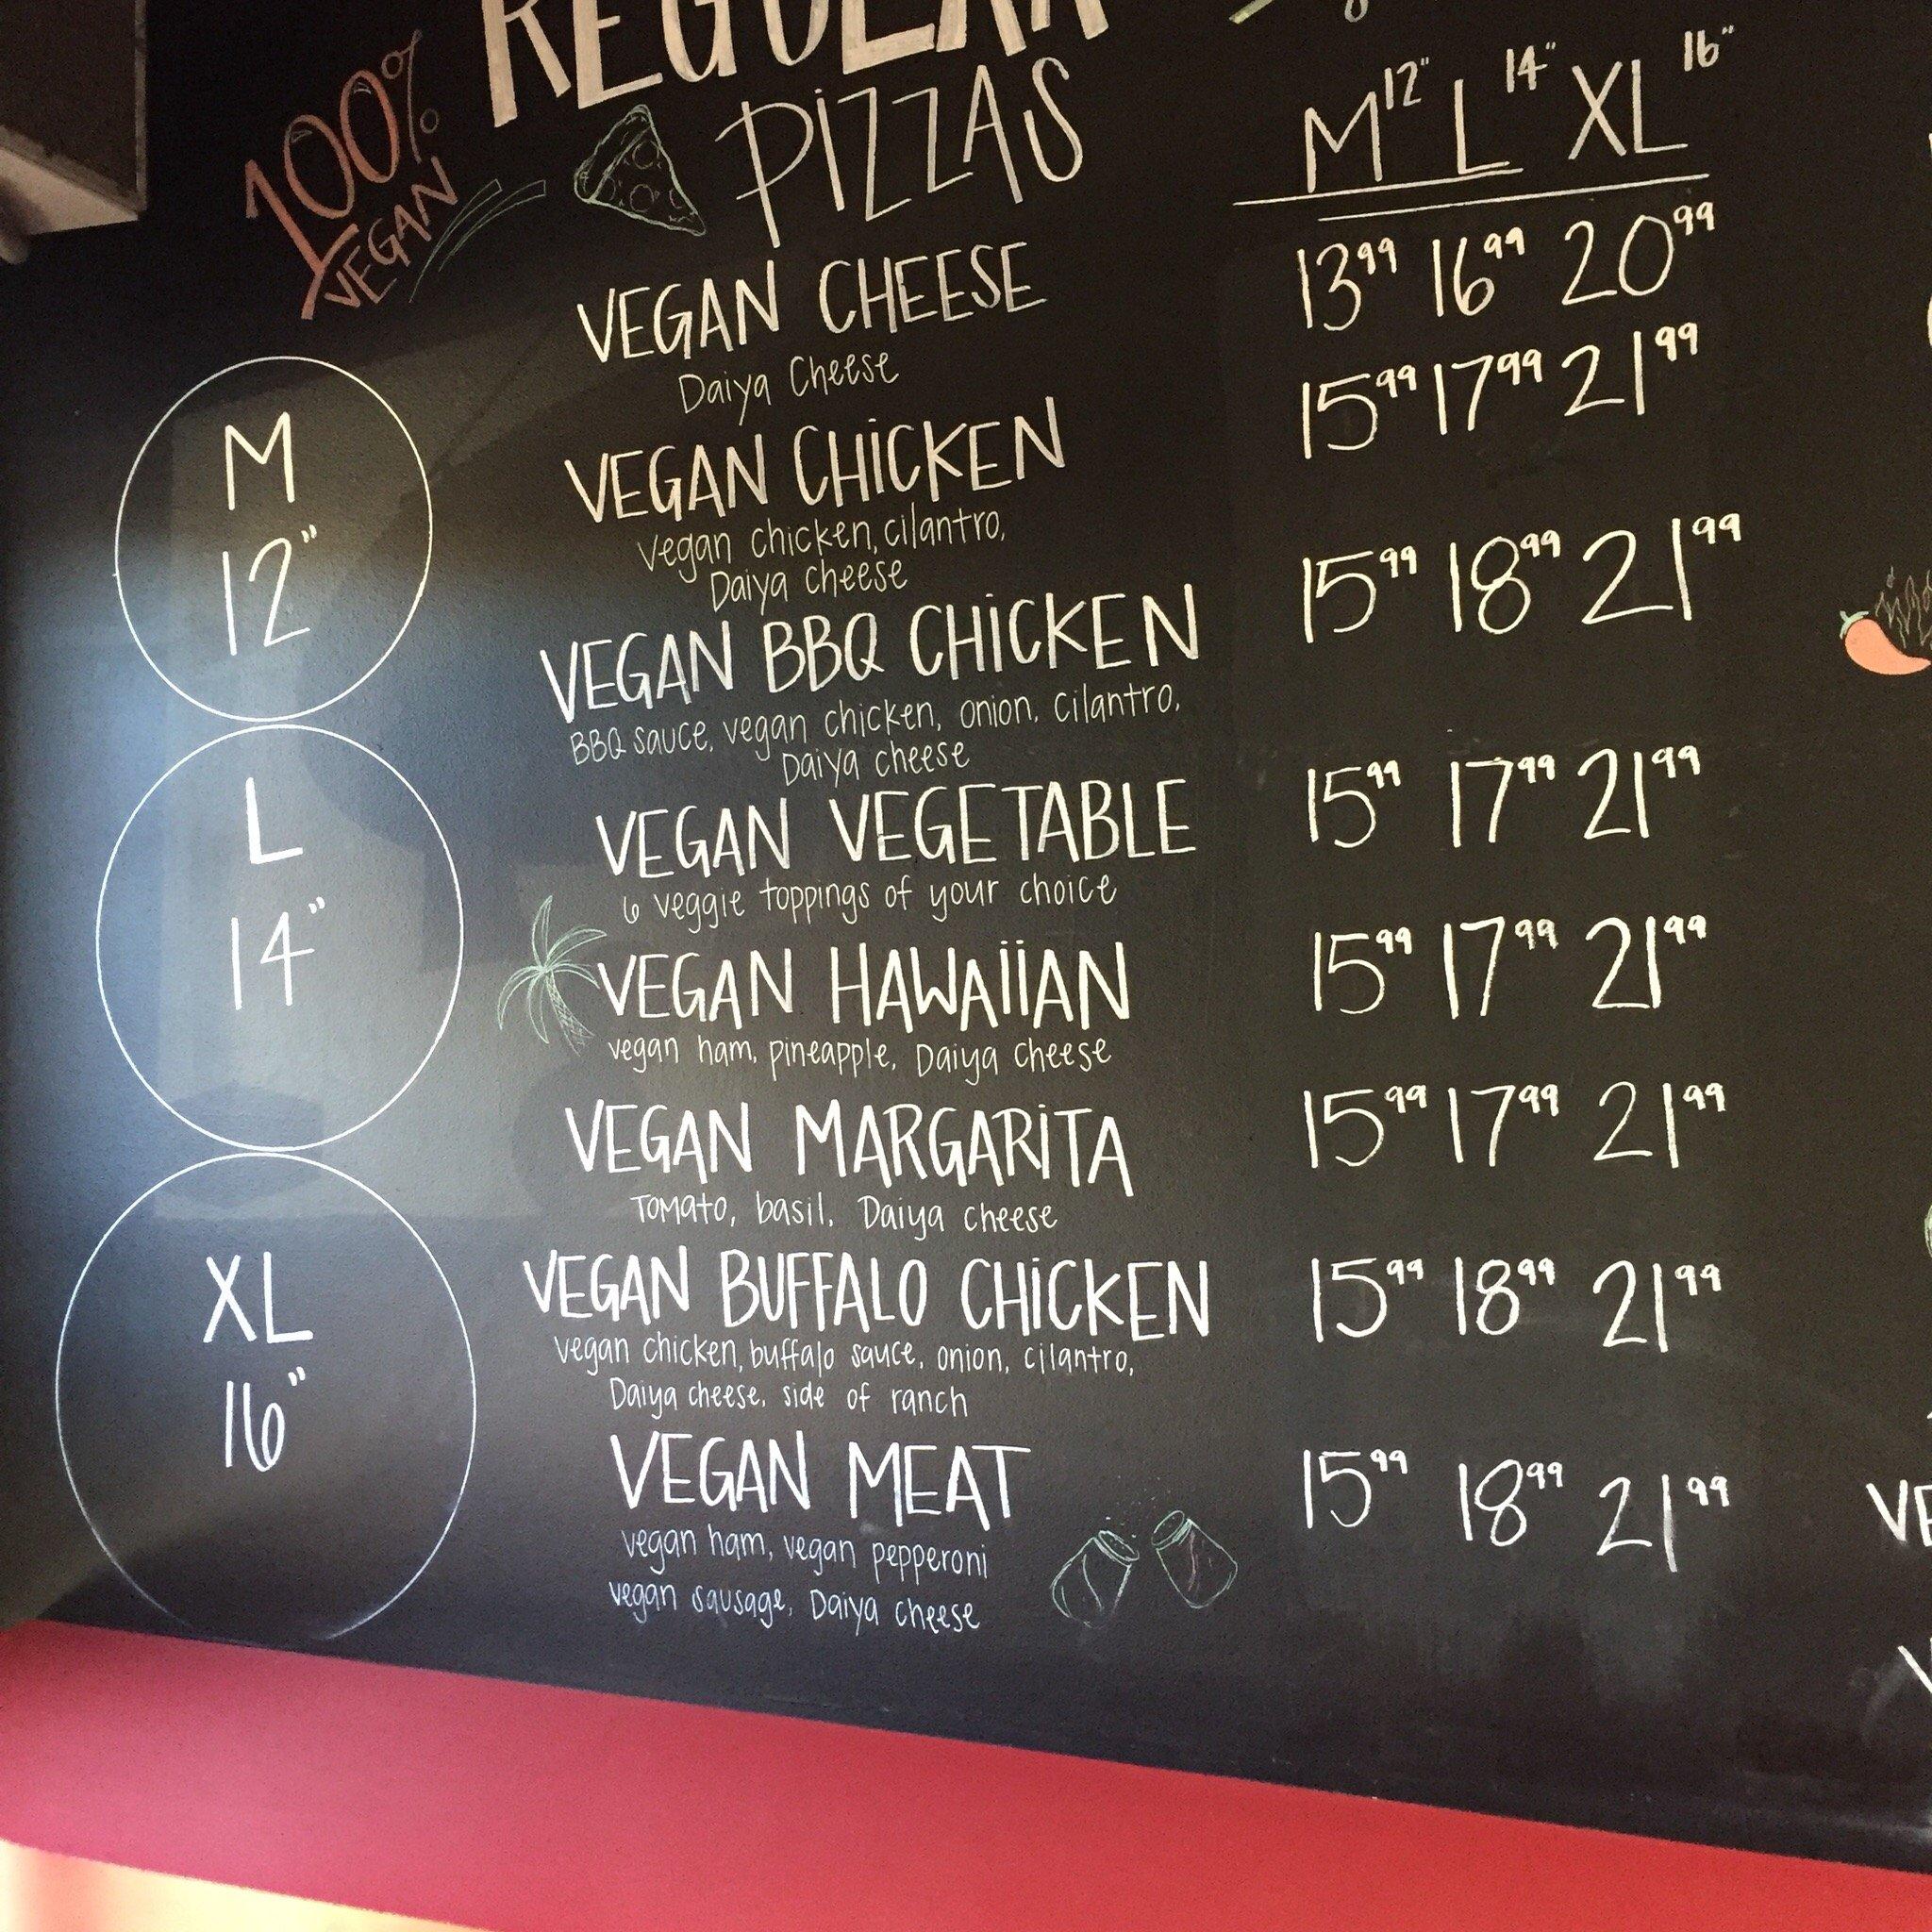 REGULAR
PIZZAS
100%
VEGAN
M 12" L 14" XL 16"
VEGAN CHEESE 13.99 16.99 20.99
Daiya Cheese
VEGAN CHICKEN 15.99 17.99 21.99
Vegan chicken, cilantro,
Daiya cheese
VEGAN BBQ CHICKEN 15.99 18.99 21.99
BBQ sauce, vegan chicken, onion, cilantro,
Daiya cheese
VEGAN VEGETABLE 15.99 17.99 21.99
6 veggie toppings of your choice
VEGAN HAWAIIAN 15.99 17.99 21.99
vegan ham, pineapple, Daiya cheese
VEGAN MARGARITA 15.99 17.99 21.99
Tomato, basil, Daiya cheese
VEGAN BUFFALO CHICKEN 15.99 18.99 21.99
vegan chicken, buffalo sauce, onion, cilantro,
Daiya cheese, side of ranch
VEGAN MEAT 15.99 18.99 21.99
vegan ham, vegan pepperoni
vegan sausage, Daiya cheese
M
12"
L
14"
XL
16"